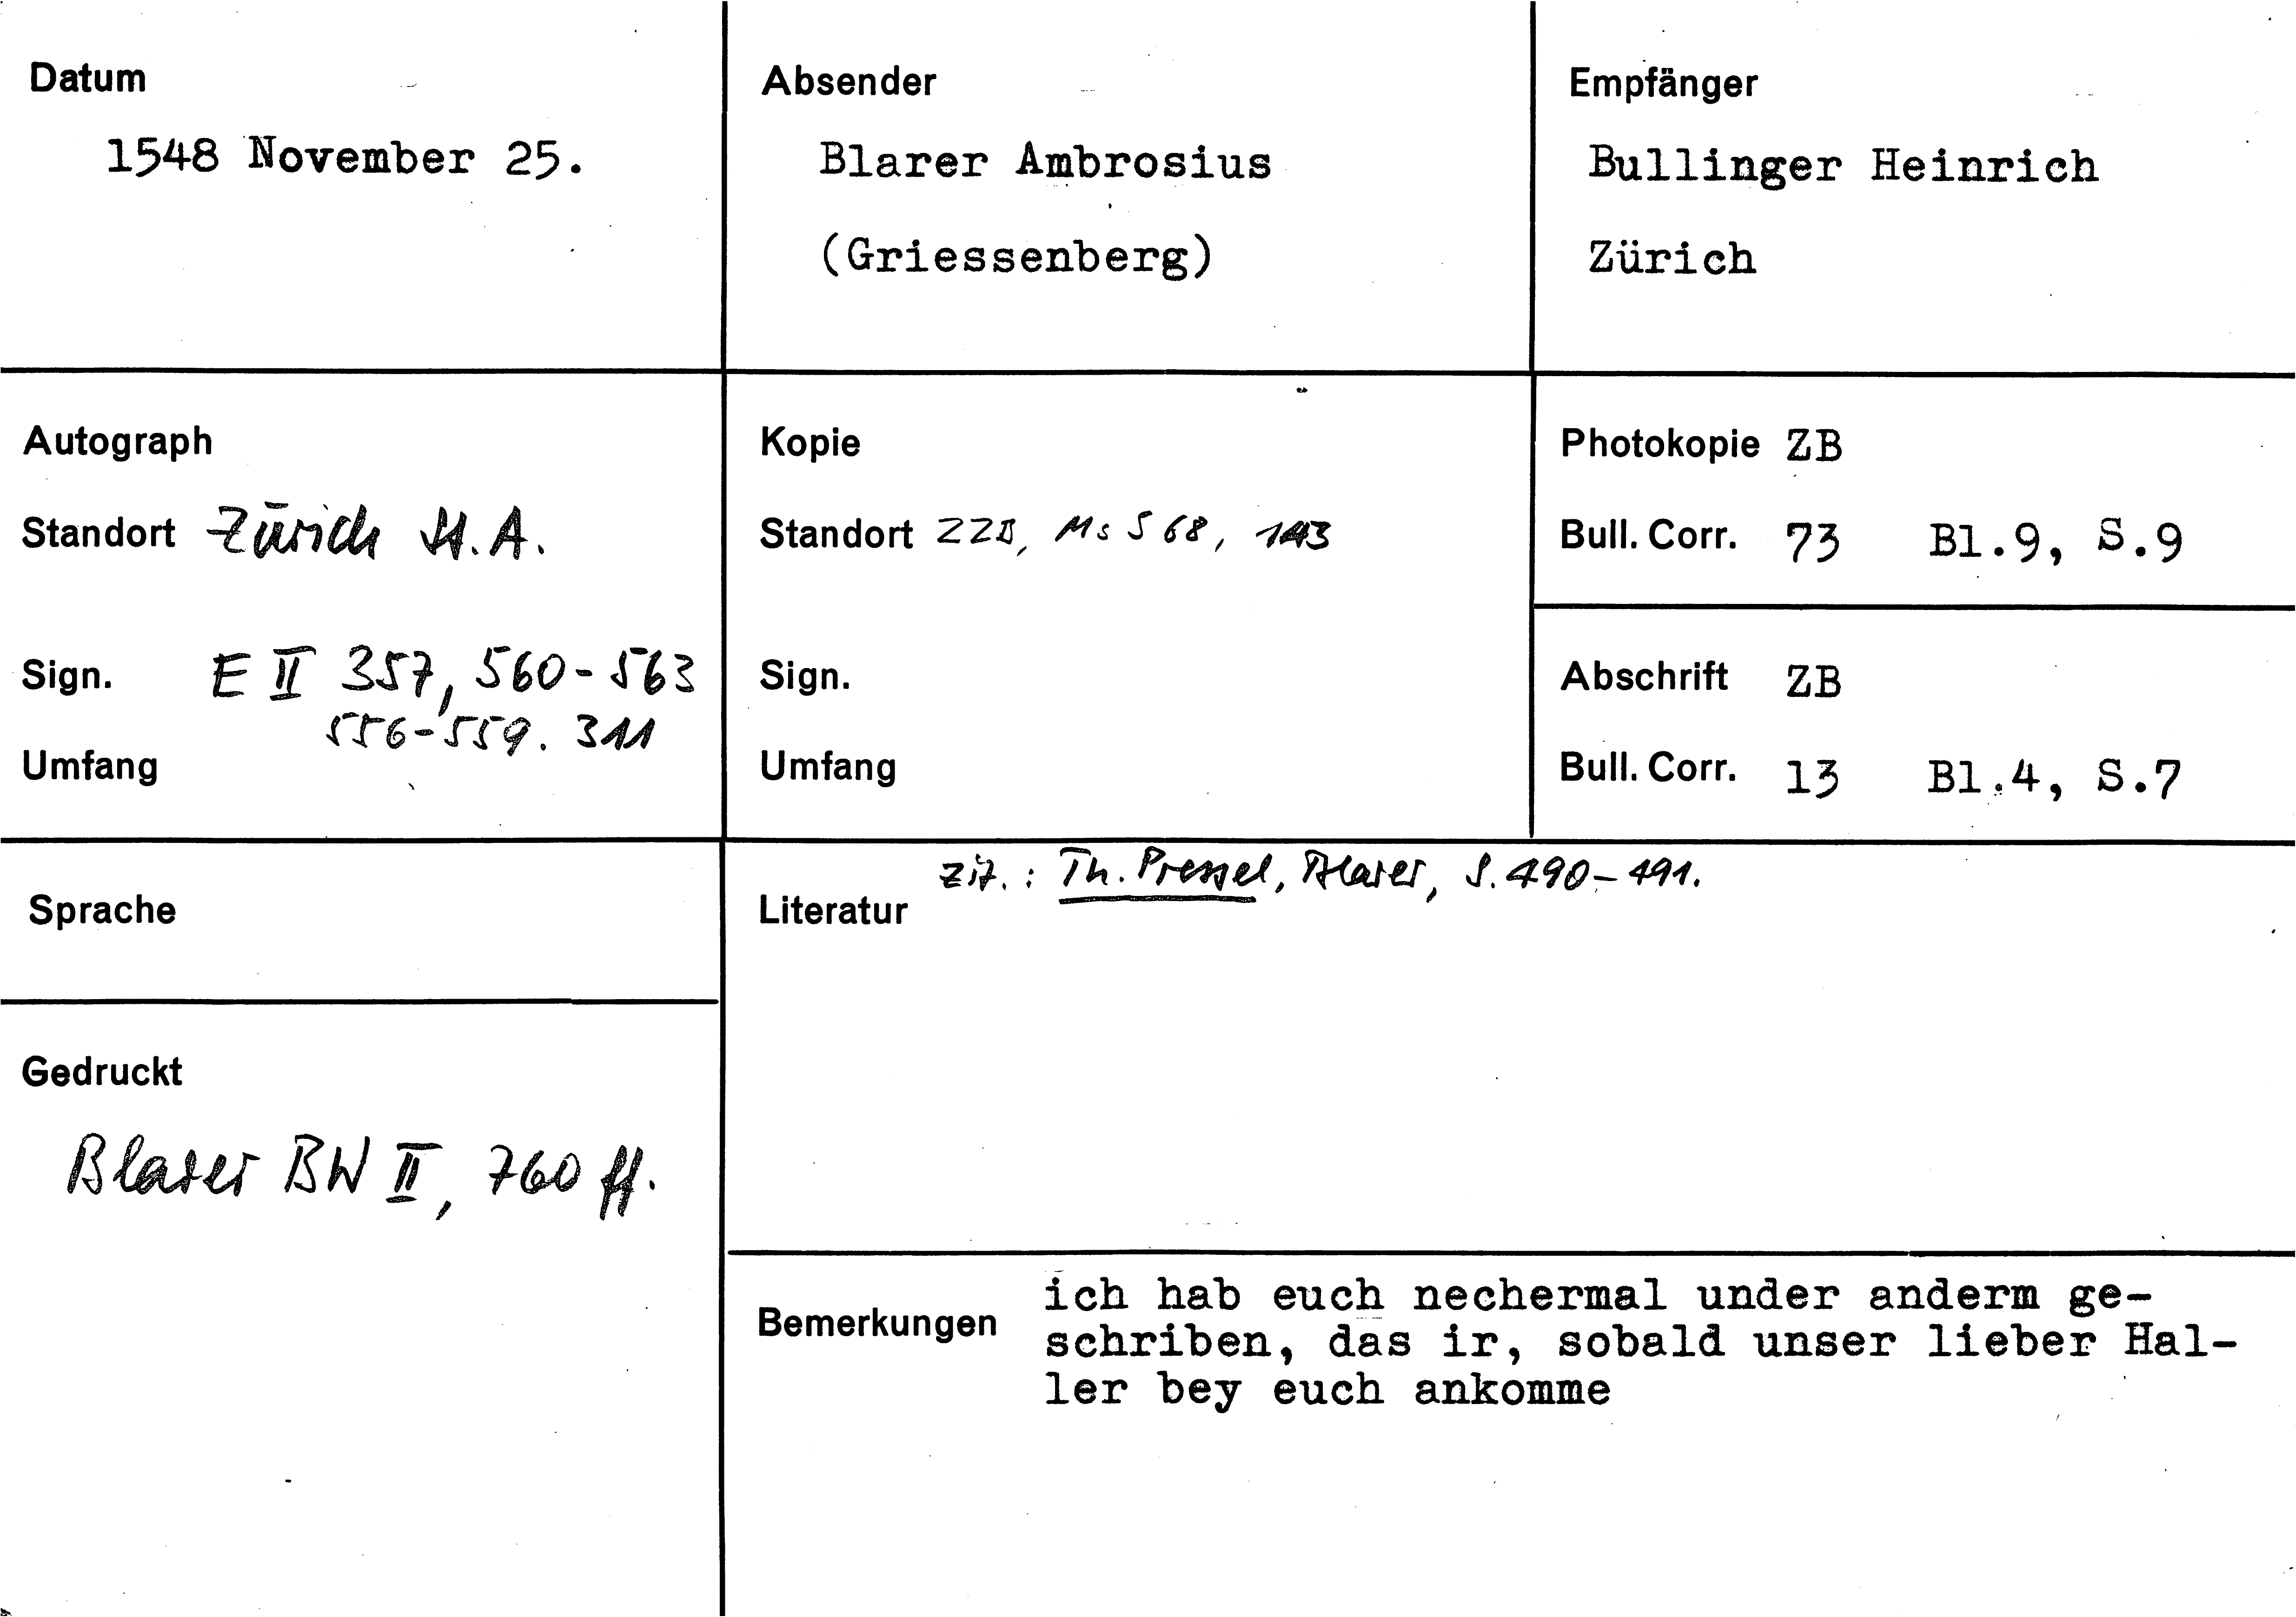 Datum
1548 November 25.
Absender
Blarer Ambrosius
(Griessenberg)
Empfänger
Bullinger Heinrich
Zürich
Autograph
Standort Zürich St.A.
Sign. E II 357, 560-563
556-559. 311
Umfang
Kopie
Standort ZZB, Ms S 68, 143
Sign.
Umfang
Photokopie ZB
Bull. Corr. 73 Bl.9, S.9
Abschrift ZB
Bull. Corr. 13 Bl.4, S.7
Sprache
Gedruckt
Blarer BW II, 760 ff.
zit.: Th. Pressel, Blarer, S. 490-491.
Literatur
Bemerkungen
ich hab euch nechermal under anderm ge-
schriben, das ir, sobald unser lieber Hal-
ler bey euch ankomme